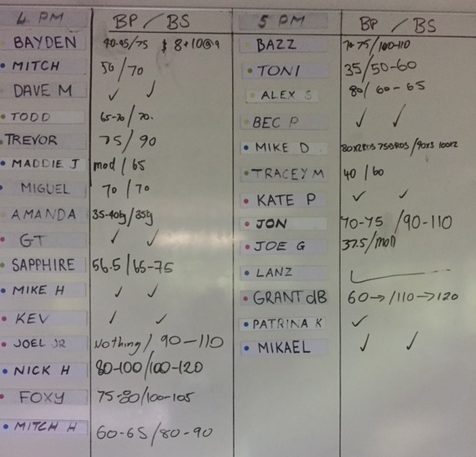 4 PM BP / BS
BAYDEN
MITCH 50 / 70
DAVE M ✓ ✓
TODD 65-70 / 70.
TREVOR 75 / 90
MADDIE J mod / 65
MIGUEL 70 / 70
AMANDA 35-40kg / 35kg
GT ✓ ✓
SAPPHIRE 56.5 / 65-75
MIKE H ✓ ✓
KEV ✓ ✓
JOEL JR Nothing / 90-110
NICK H 80-100 / 100-120
FOXY 75-80 / 100-105
MITCH H 60-65 / 80-90
5 PM BP / BS
BAZZ 70 75 / 100-110
TONI 35 / 50-60
ALEX S 80 / 60-65
BEC P ✓ ✓
MIKE D
TRACEY M 40 / 60
KATE P ✓ ✓
JON 70-75 / 90-110
JOE G 37.5 / mod
LANZ
GRANT dB 60 → / 110 → 120
PATRINA K ✓
MIKAEL ✓ ✓